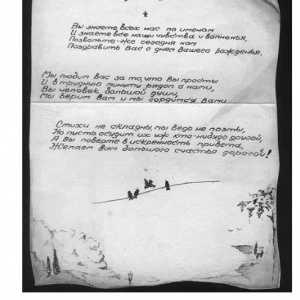 Вы знаете всех нас по именам
И знаете все наши чувства и волненья,
Позвольте-же сегодня нам
Поздравить Вас с днем Вашего рожденья.
Мы любим вас за то, что вы просты
И в трудную минуту рядом с нами,
Вы человек большой души,
Мы верим вам и мы гордимся вами.
Стихи не складны, мы ведь не поэты,
Но пусть осудит их уж кто-нибудь другой,
А вы поверьте в искренность привета,
Желаем вам большого счастья дорогой!